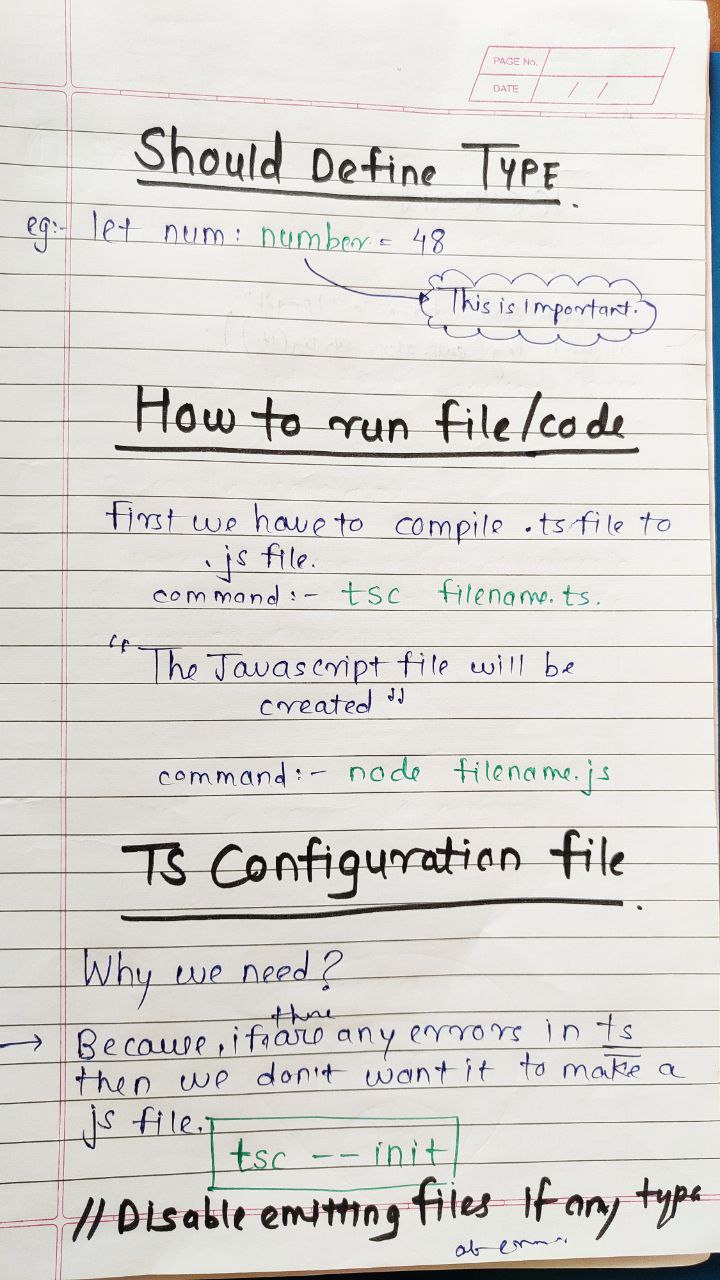 PAGE No.
DATE / /
Should Define TYPE.
eg:- let num: number = 48
This is Important.
How to run file/code
first we have to compile .ts file to
.js file.
command:- tsc filename.ts.
"The Javascript file will be
created"
command:- node filename.js
TS Configuration file.
Why we need?
there
→ Because, if are any errors in ts
then we don't want it to make a
js file.
tsc --init
//Disable emitting files if any type
of